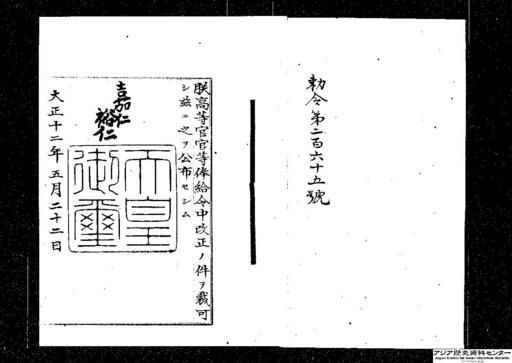 勅令第二百六十五號
朕高等官官等俸給令中改正ノ件ヲ裁可
シ茲ニ之ヲ公布セシム
嘉仁
裕仁
天皇
御璽
大正十二年五月二十二日
アジア歴史資料センター
Japan Center for Asian Historical Records